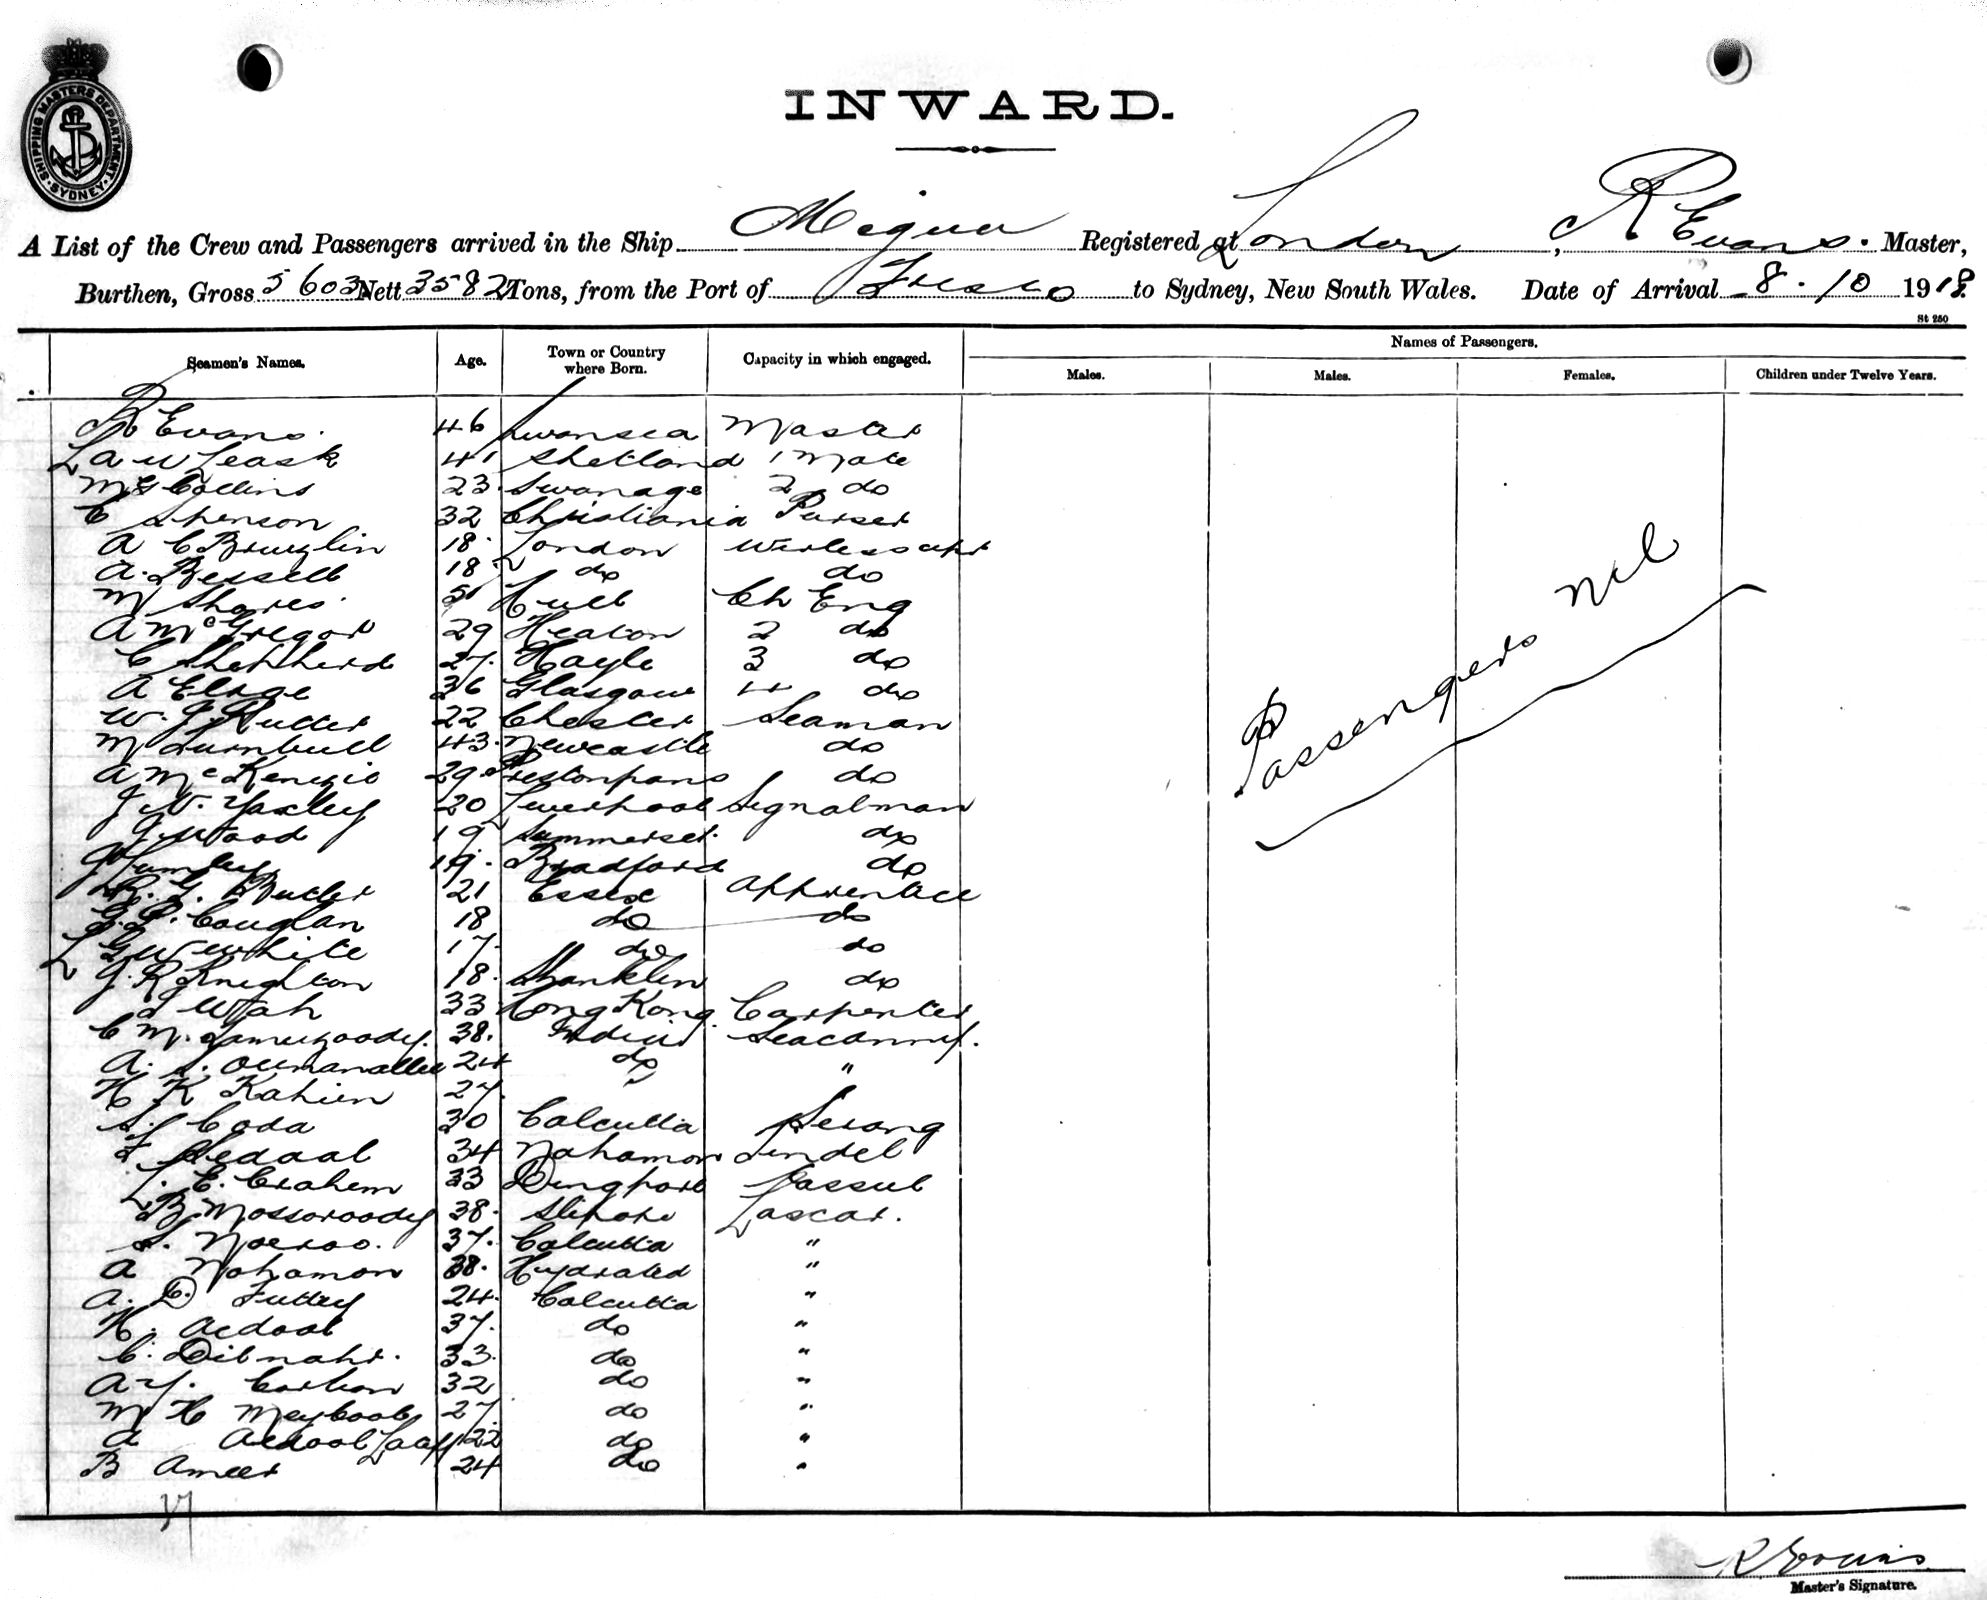 SHIPPING MASTERS DEPARTMENT
SYDNEY
INWARD.
A List of the Crew and Passengers arrived in the Ship Registered at London, R Evans. Master,
Burthen, Gross 5603 Nett 3582 Tons, from the Port of Frisco to Sydney, New South Wales. Date of Arrival 8.10 1918.
St 250
Seamen's Names. Age. Town or Country where Born. Capacity in which engaged. Names of Passengers.
Males. Males. Females. Children under Twelve Years.
R Evans. 46 Swansea Master
L A W Leask 41 Shetland 1 Mate
Collins 23. Swanage 2 do
C 32 Christiania Purser
A C 18. London Wireless opr
A. Bessell 18. do do
M Shores. 51 Hull Ch Eng
A McGregor 29 Heaton 2 do
C Shepherd 27. Hayle 3 do
A 36 Glasgow 4 do
W. J. Rutter 22 Chester Seaman
M Turnbull 43. Newcastle do
A McKenzie 29. Prestonpans do
J V. Yaxley 20 Liverpool Signalman
J Wood 19 Summerset. do
19. Bradford do
R. G. Butler 21 Essex Apprentice
Couglan 18 do do
L G W White 17. do do
J. R Knighton 18. Shanklin do
Wah 33 Hong Kong. Carpenter
C M. 38. India
A. S. 24 do "
H K Kahien 27.
Coda 30 Calcutta Serang
34 Nahamon Tindel
L. E. Crahem 33 Cassub
B 38. Lascar.
37. Calcutta "
A Nohamon 38. "
A. D. Futtey 24. Calcutta "
H. Aedool 37. do "
C. 33. do "
A Y. 32 do "
M H 27. do "
A Aedool Laaff 22 do "
B Ameer 24 do "
37
Passengers nil
R Evans
Master's Signature.